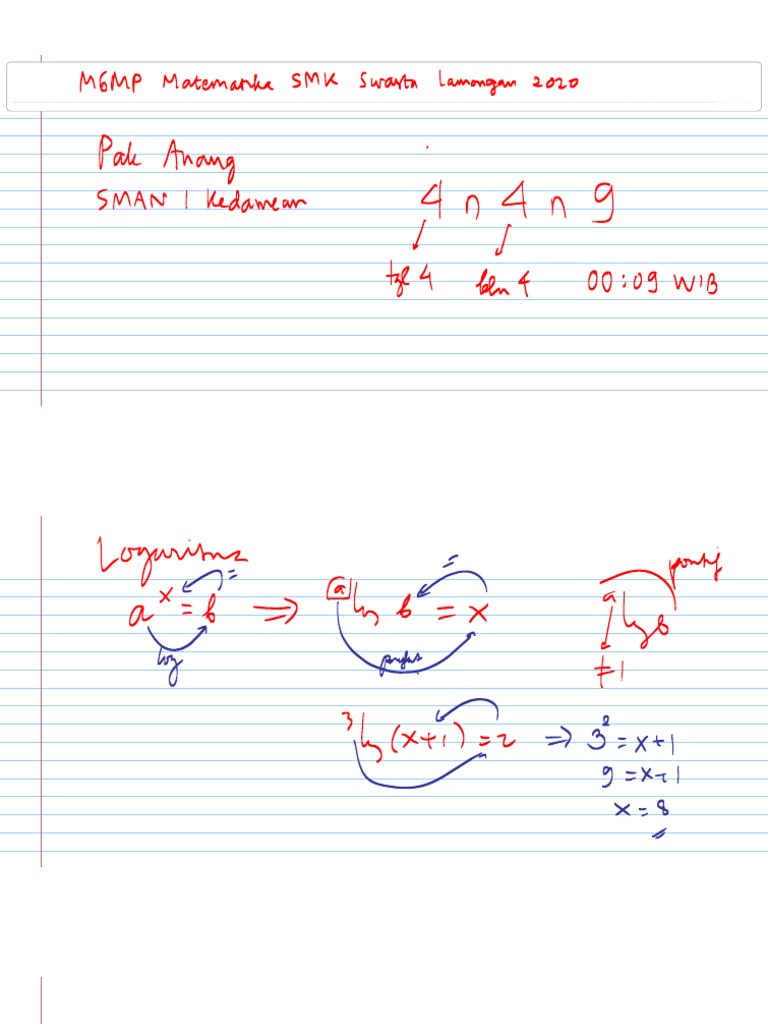 MGMP Matematika SMK Swasta Lamongan 2020
Pak Anang
SMAN 1 Kedamean
4 n 4 n 9
tgl 4 bln 4 00:09 WIB
Logaritma
aˣ = b ⇒ ᵃlog b = x
log
=
=
pangkat
ᵃlog b
positif
≠ 1
³log (x+1) = 2 ⇒ 3² = x+1
9 = x+1
x = 8